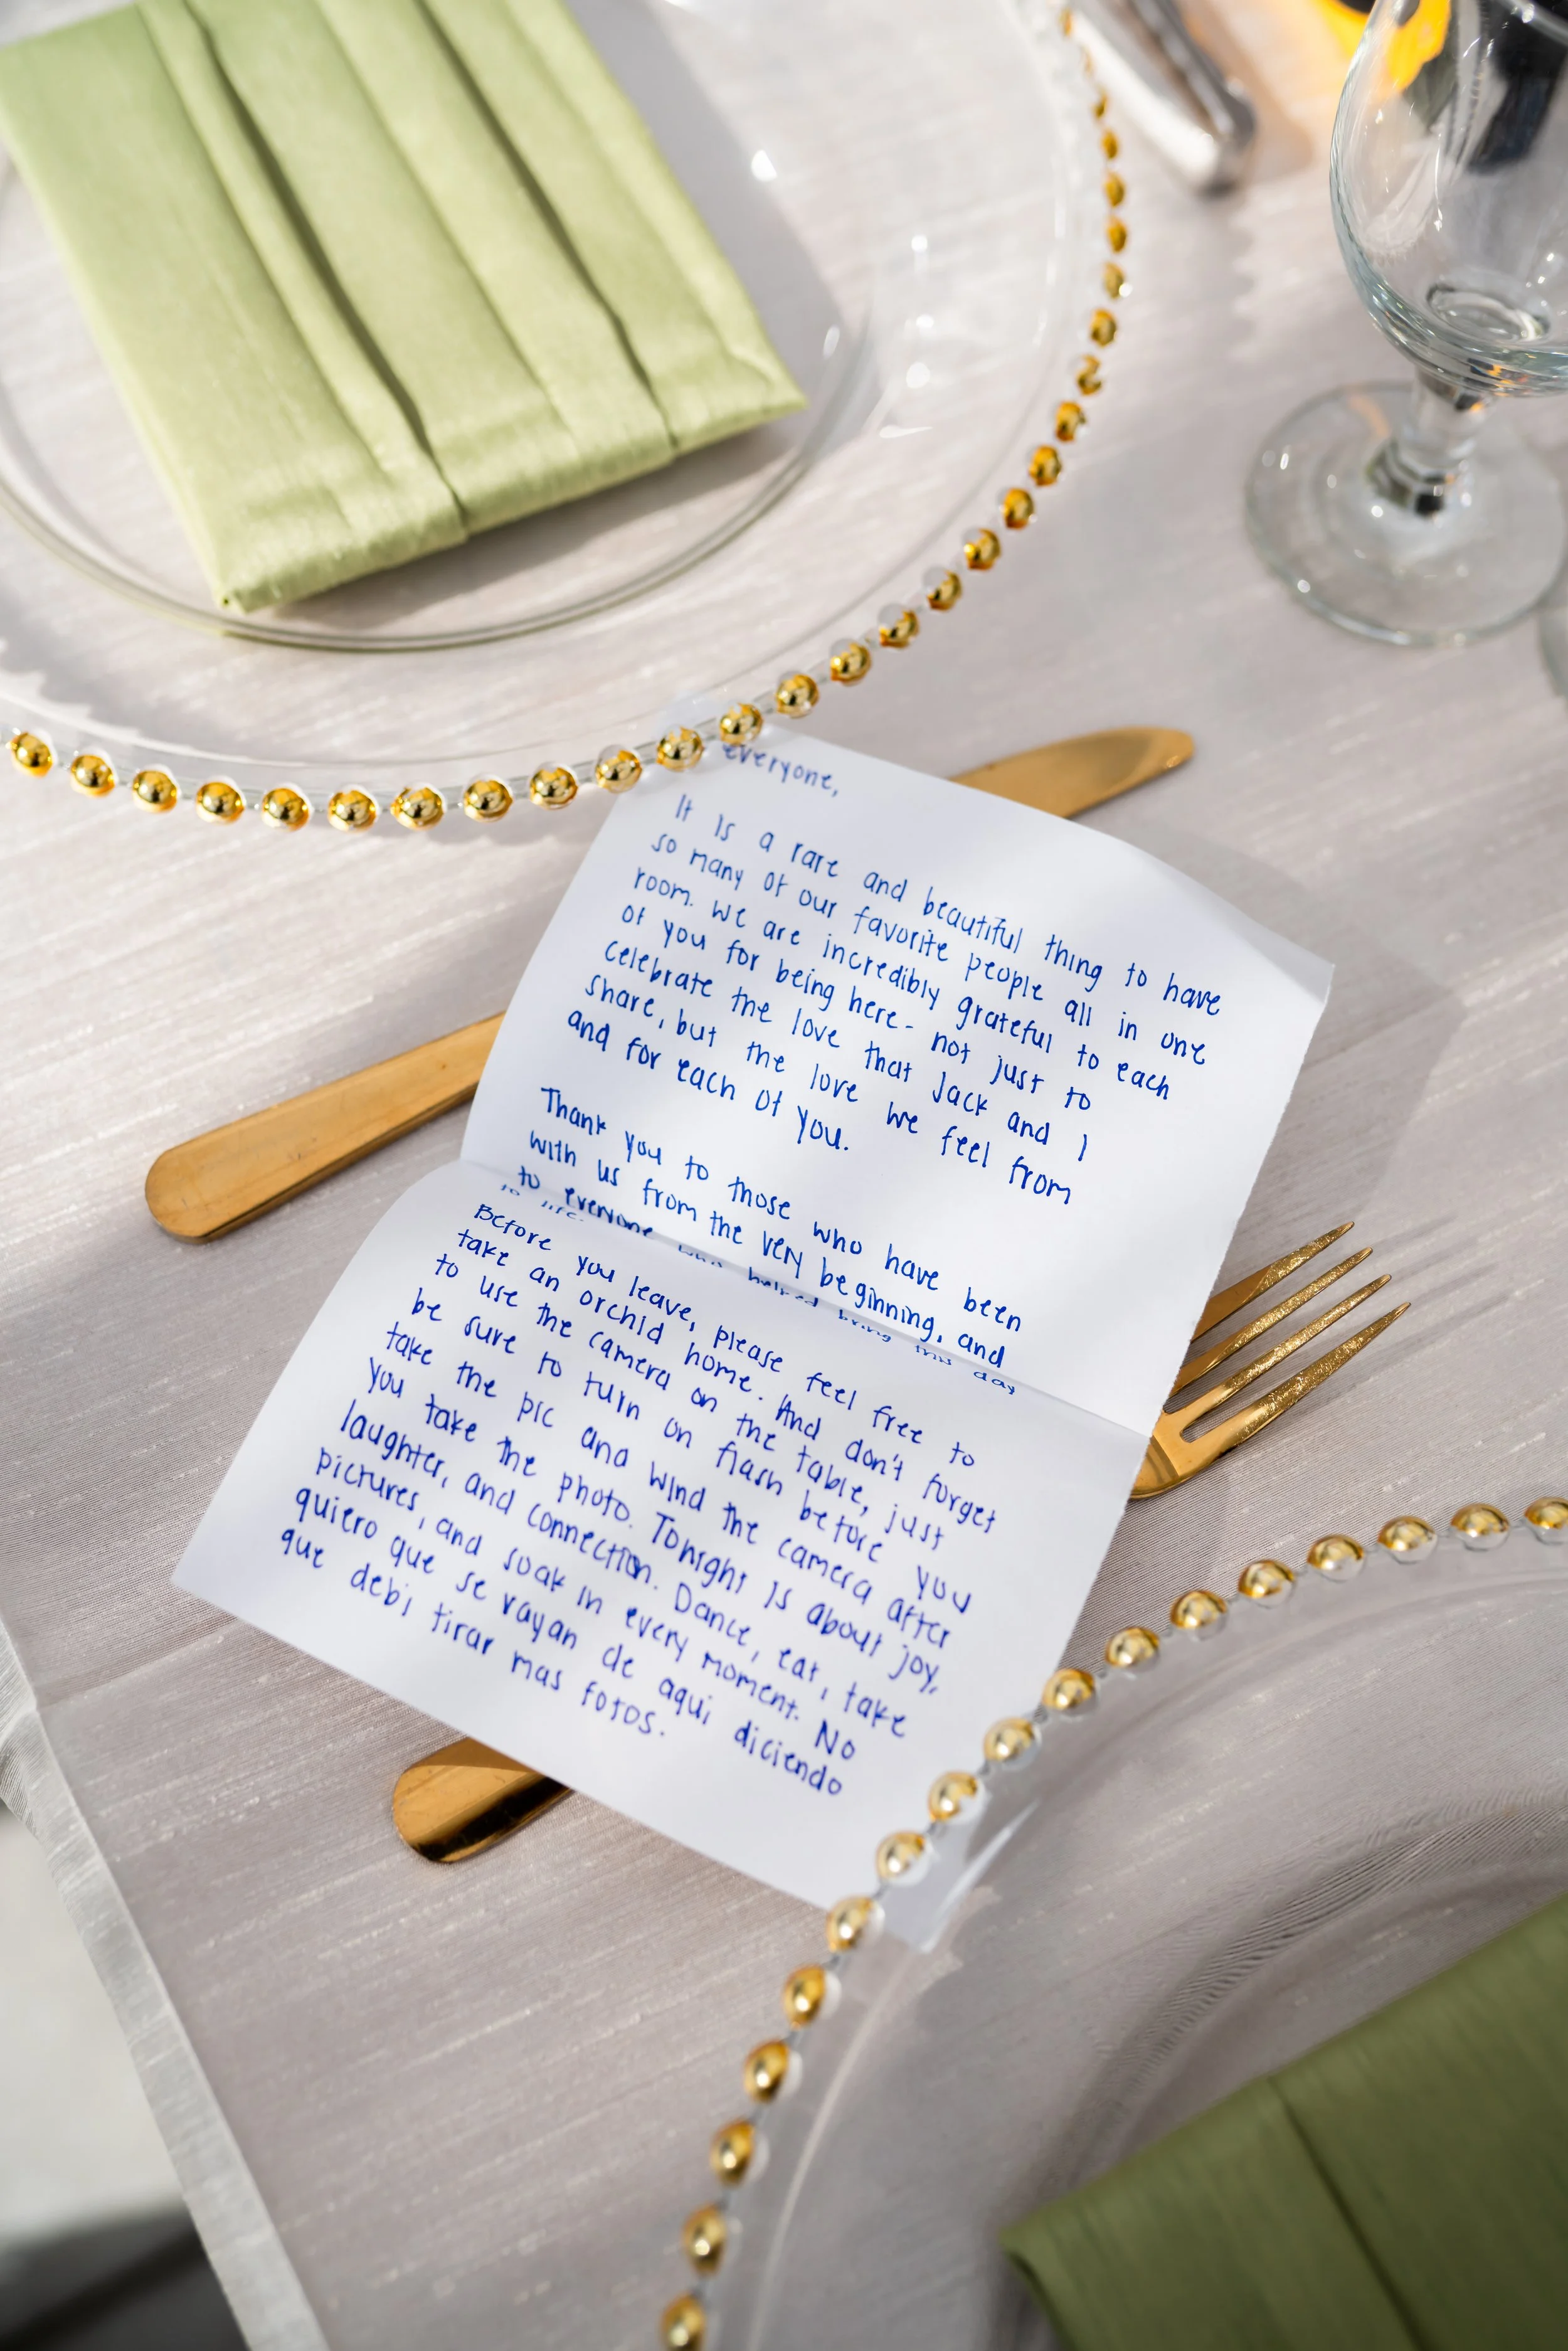 everyone,
It is a rare and beautiful thing to have
so many of our favorite people all in one
room. We are incredibly grateful to each
of you for being here - not just to
celebrate the love that Jack and I
share, but the love we feel from
and for each of you.
Thank you to those who have been
with us from the very beginning, and
to everyone who helped bring this day
to life.
Before you leave, please feel free to
take an orchid home. And don't forget
to use the camera on the table, just
be sure to turn on flash before you
take the pic and wind the camera after
you take the photo. Tonight is about joy,
laughter, and connection. Dance, eat, take
pictures, and soak in every moment. No
quiero que se vayan de aqui diciendo
que debi tirar mas fotos.